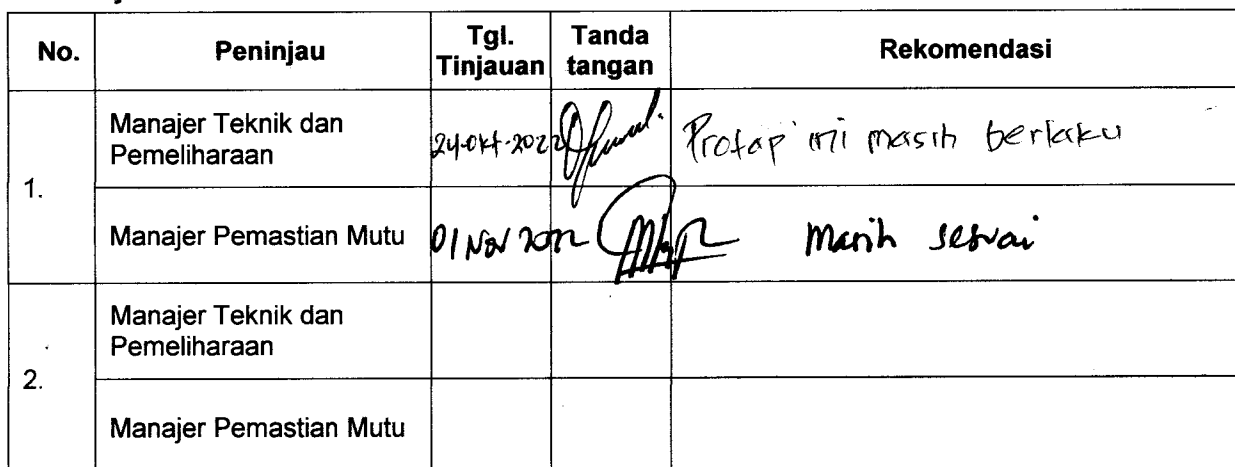 No. Peninjau Tgl. Tinjauan Tanda tangan Rekomendasi
1.
Manajer Teknik dan Pemeliharaan 24-okt-2022 Protap ini masih berlaku
Manajer Pemastian Mutu 01 Nov 2022 Masih sesuai
2.
Manajer Teknik dan Pemeliharaan
Manajer Pemastian Mutu